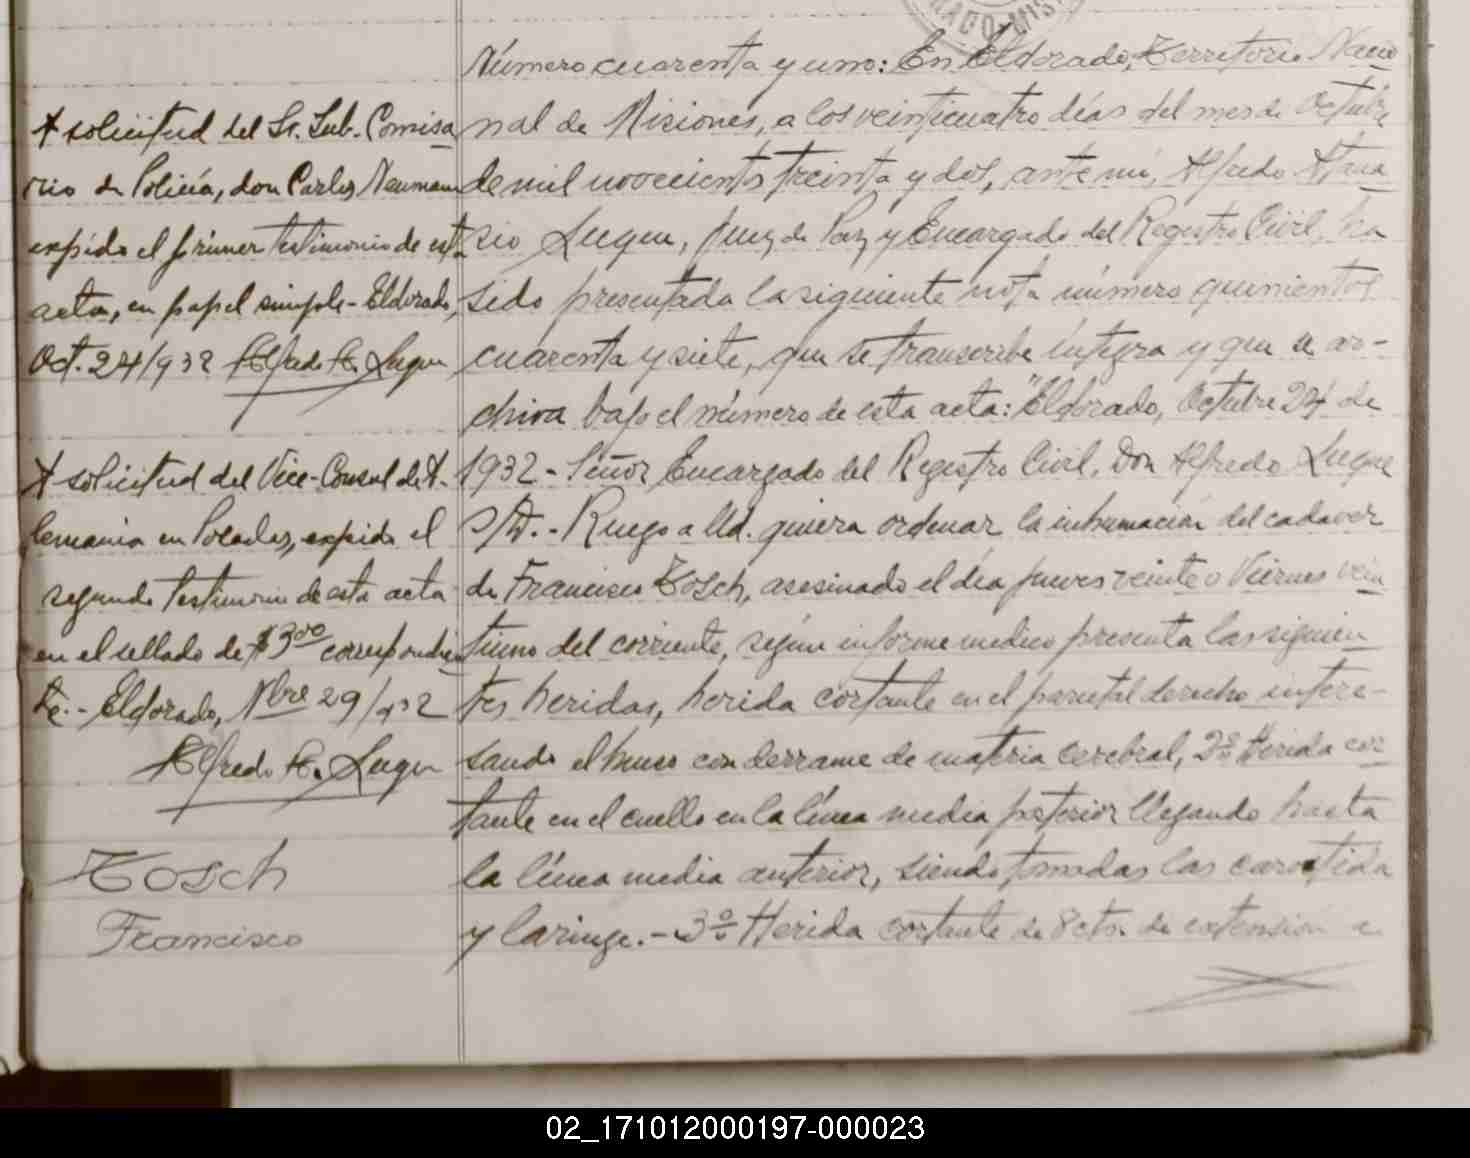 Número cuarenta y uno: En Eldorado, Territorio Nacio
nal de Misiones, a los veinticuatro días del mes de Octubre
de mil novecientos treinta y dos, ante mi, Alfredo Atana
sio Luque, Juez de Paz y Encargado del Registro Civil, ha
sido presentada la siguiente nota número quinientos
cuarenta y siete, que se transcribe íntegra y que se ar-
chiva bajo el número de esta acta: "Eldorado, Octubre 24 de
1932 - Señor Encargado del Registro Civil, Don Alfredo Luque
S/D. - Ruego a Ud. quiera ordenar la inhumación del cadaver
de Francisco Tosch, asesinado el día jueves veinte o Viernes vein
tiuno del corriente, según informe medico presenta las siguien
tes heridas, herida cortante en el parietal derecho intere-
sando el hueso con derrame de materia cerebral, 2º Herida cor
tante en el cuello en la línea media posterior llegando hasta
la línea media anterior, siendo tomadas las carotida
y laringe. - 3º Herida cortante de 8 cts. de extensión a
A solicitud del Sr. Sub. Comisa
rio de Policía, don Carlos Neumann
expido el primer testimonio de esta
acta, en papel simple - Eldorado,
Oct. 24/932 Alfredo A. Luque
A solicitud del Vice-Consul de A-
lemania en Posadas, expido el
segundo testimonio de esta acta
en el sellado de $3.00 correspondien
te. - Eldorado, Nbre 29/932
Alfredo A. Luque
Tosch
Francisco
02_171012000197-000023